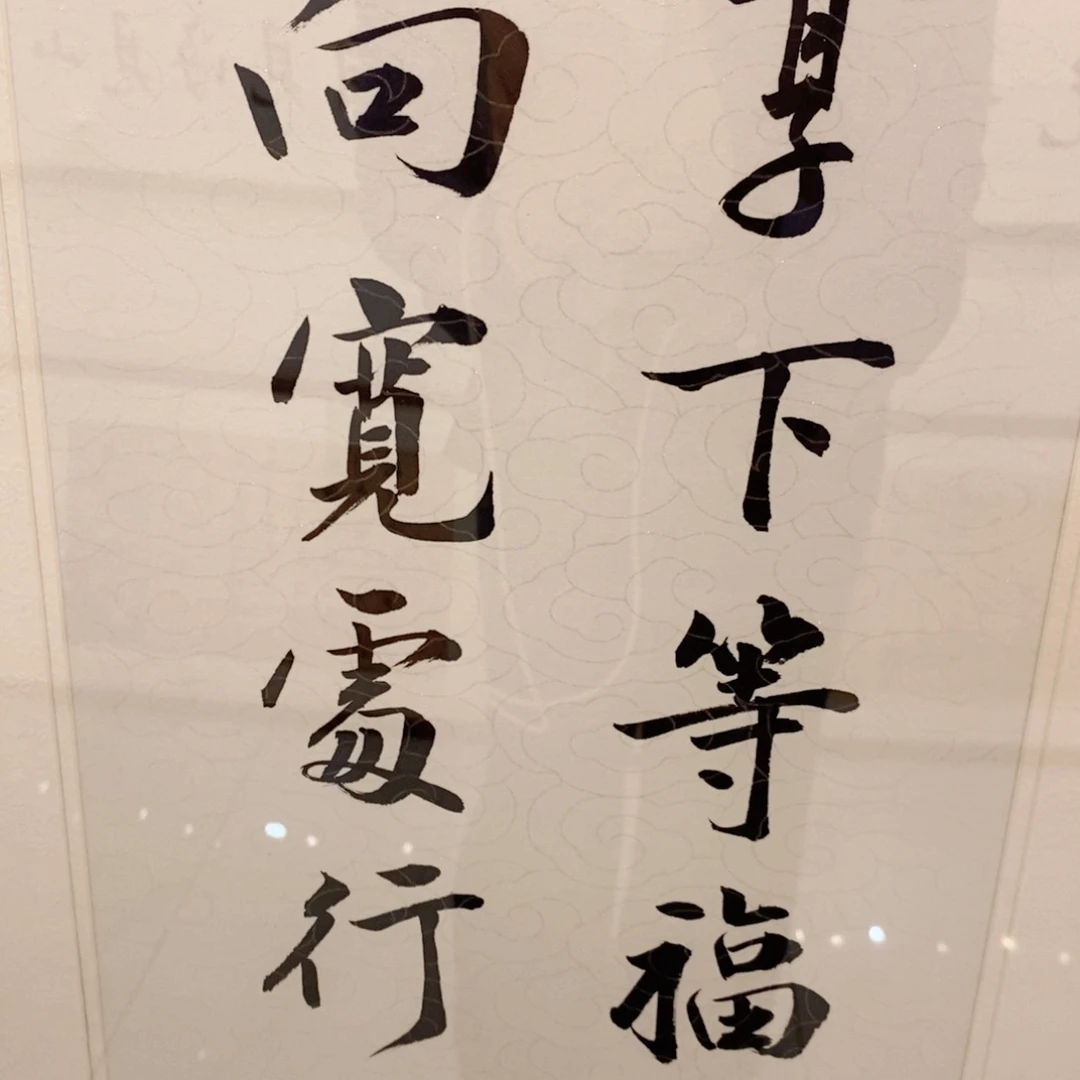 享下等福
向寬處行